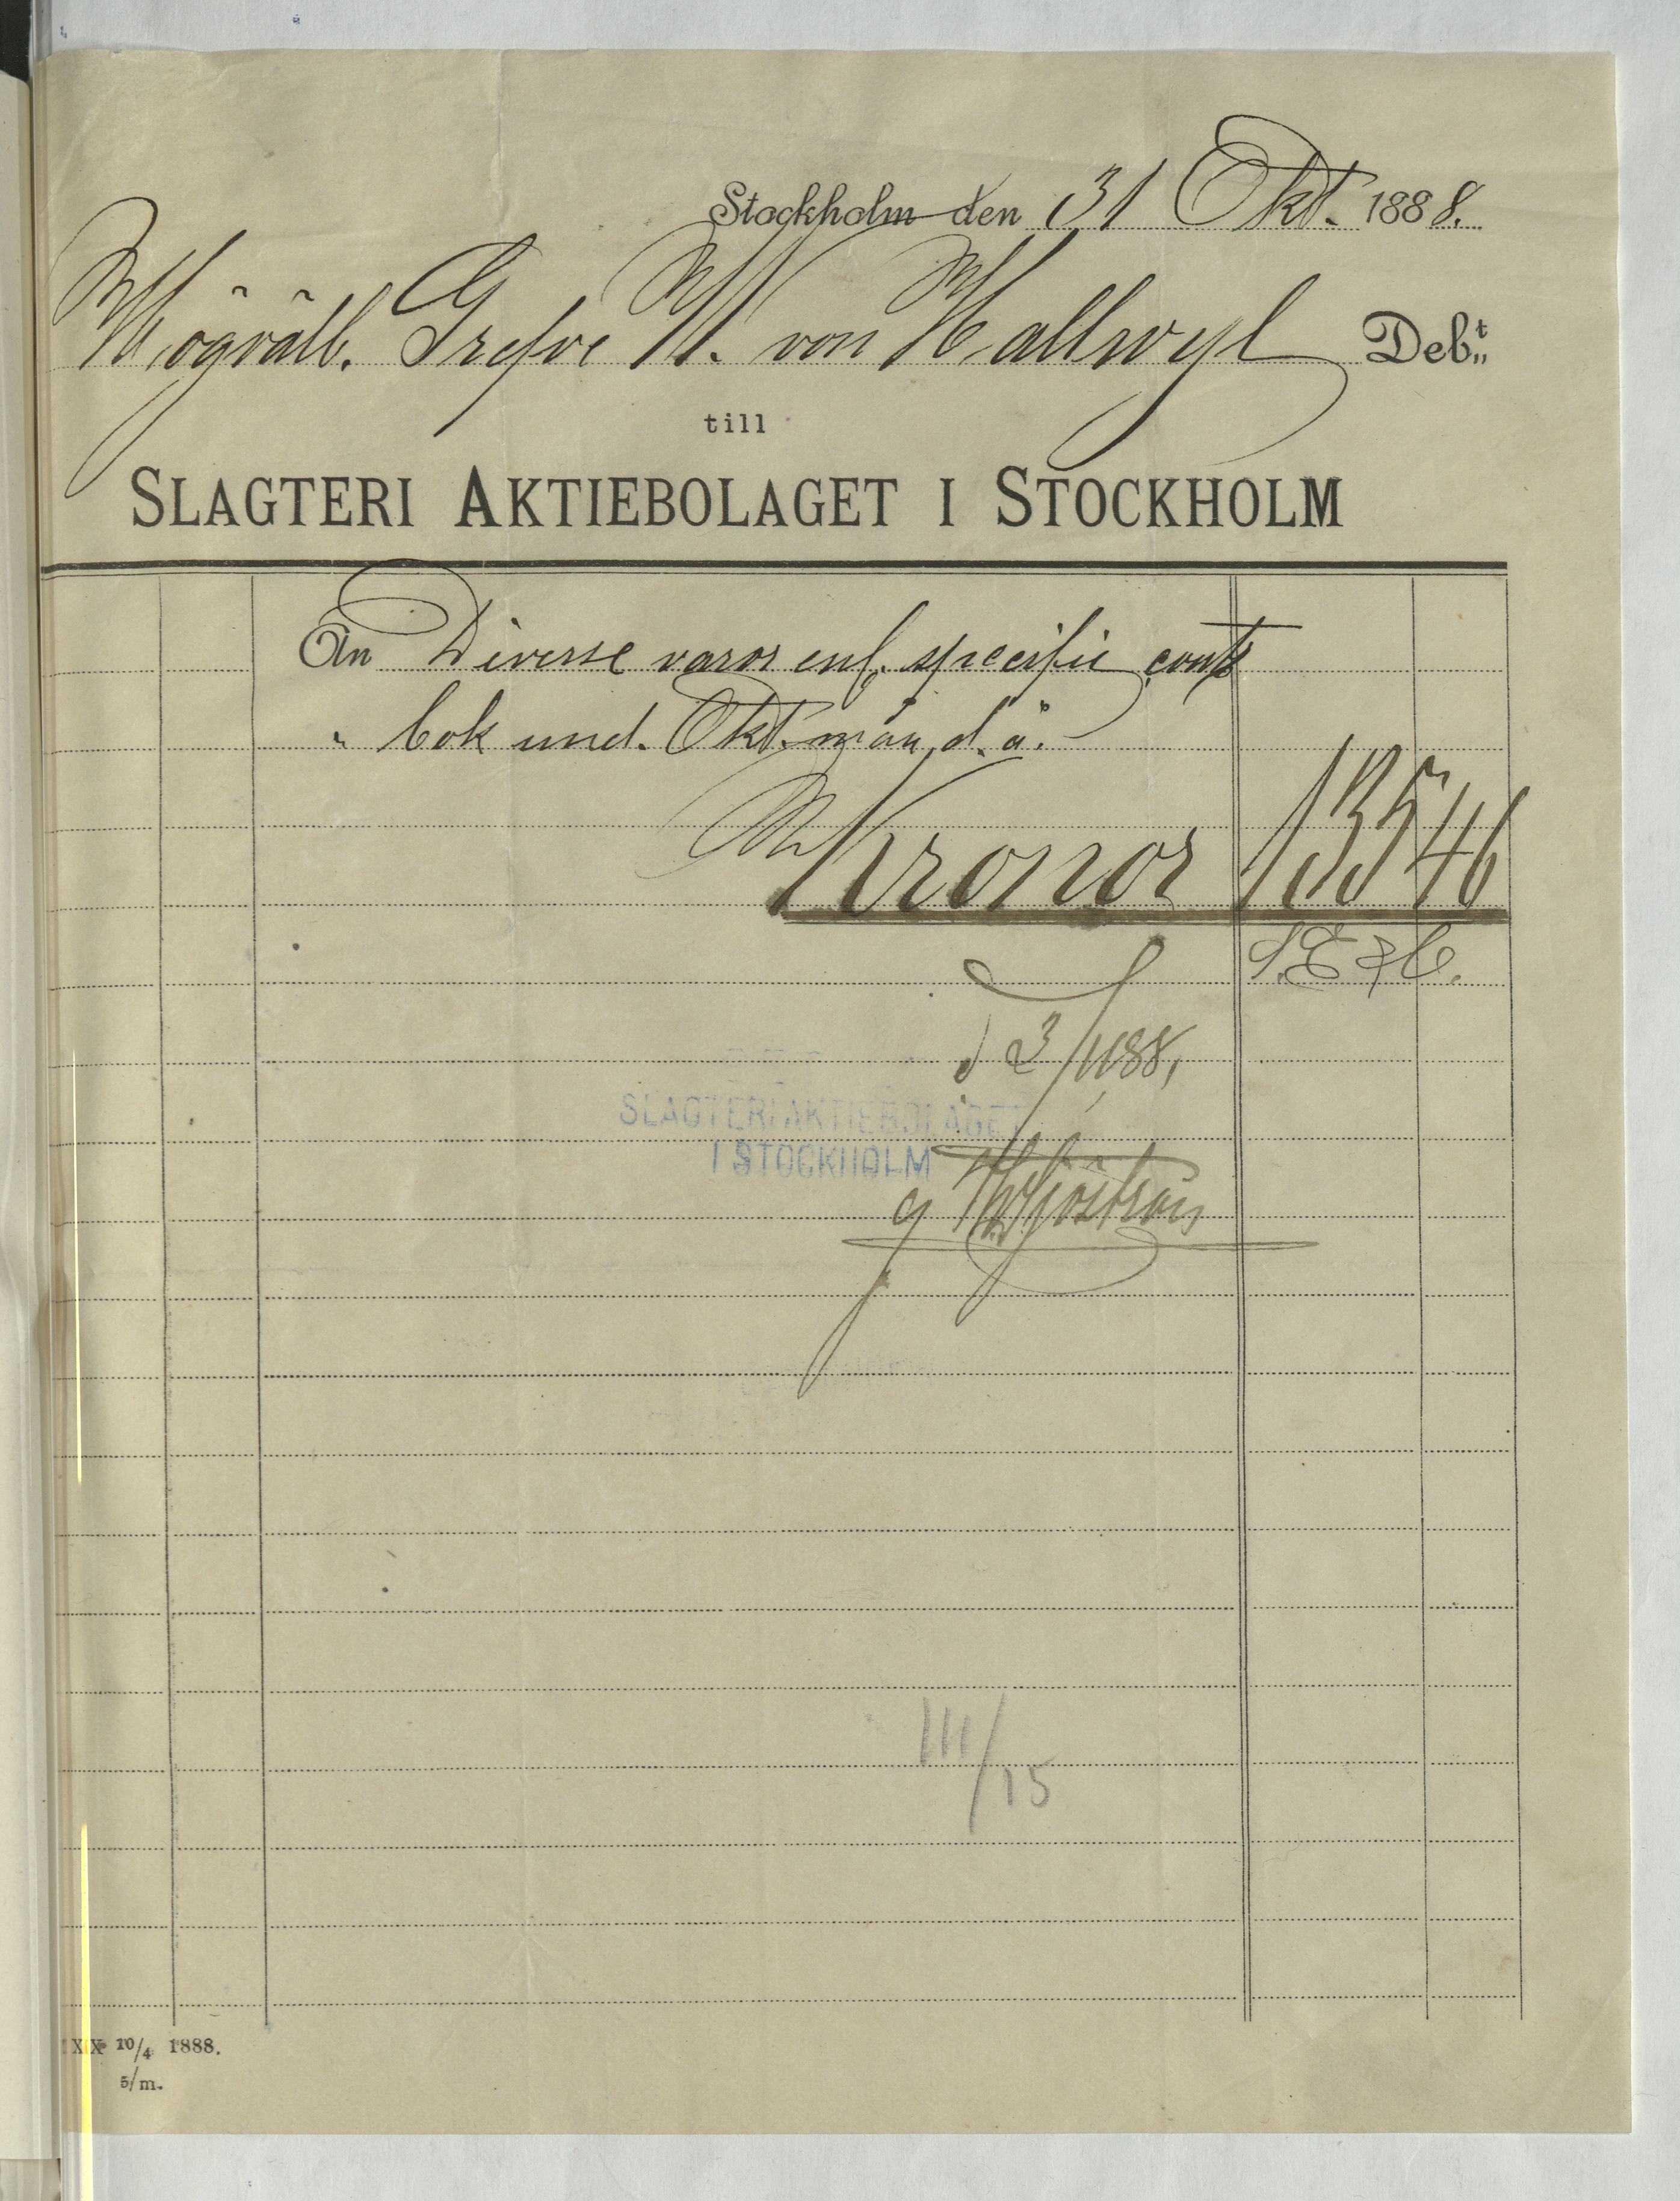 Stockholm den 31 Okt. 1888.
Högvälb. Grefve W. von Hallwyl Deb:t
till
SLAGTERI AKTIEBOLAGET I STOCKHOLM
An Diverse varor enl. specific conto
" bok und. Okt. mån. d. å.
Kronor 135 46
S. E. & O.
d 3/11 88,
SLAGTERIAKTIEBOLAGET
I STOCKHOLM
Sjöström
III/15
XX 10/4 1888.
5/m.